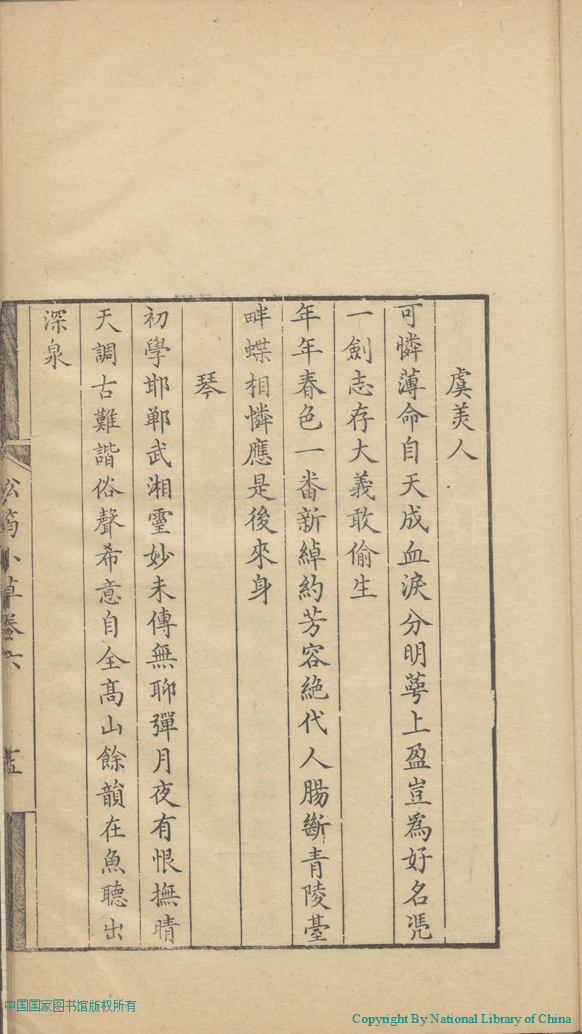 虞美人
可憐薄命自天成血淚分明萼上盈豈爲好名凴
一劍志存大義敢偷生
年年春色一番新綽約芳容絶代人腸斷青陵臺
畔蝶相憐應是後來身
琴
初學邯鄲武湘霊妙未傳無聊彈月夜有恨撫晴
天調古難諧俗聲希意自全髙山餘韻在魚聽出
深泉
松筠小草卷六
中国国家图书馆版权所有
Copyright By National Library of China